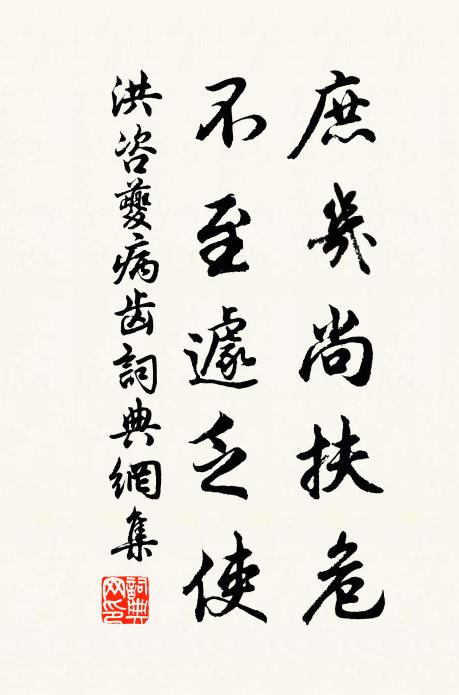 庶幾尚扶危
不至遽乏使
洪咨夔病齒詞典網集
詞典網印